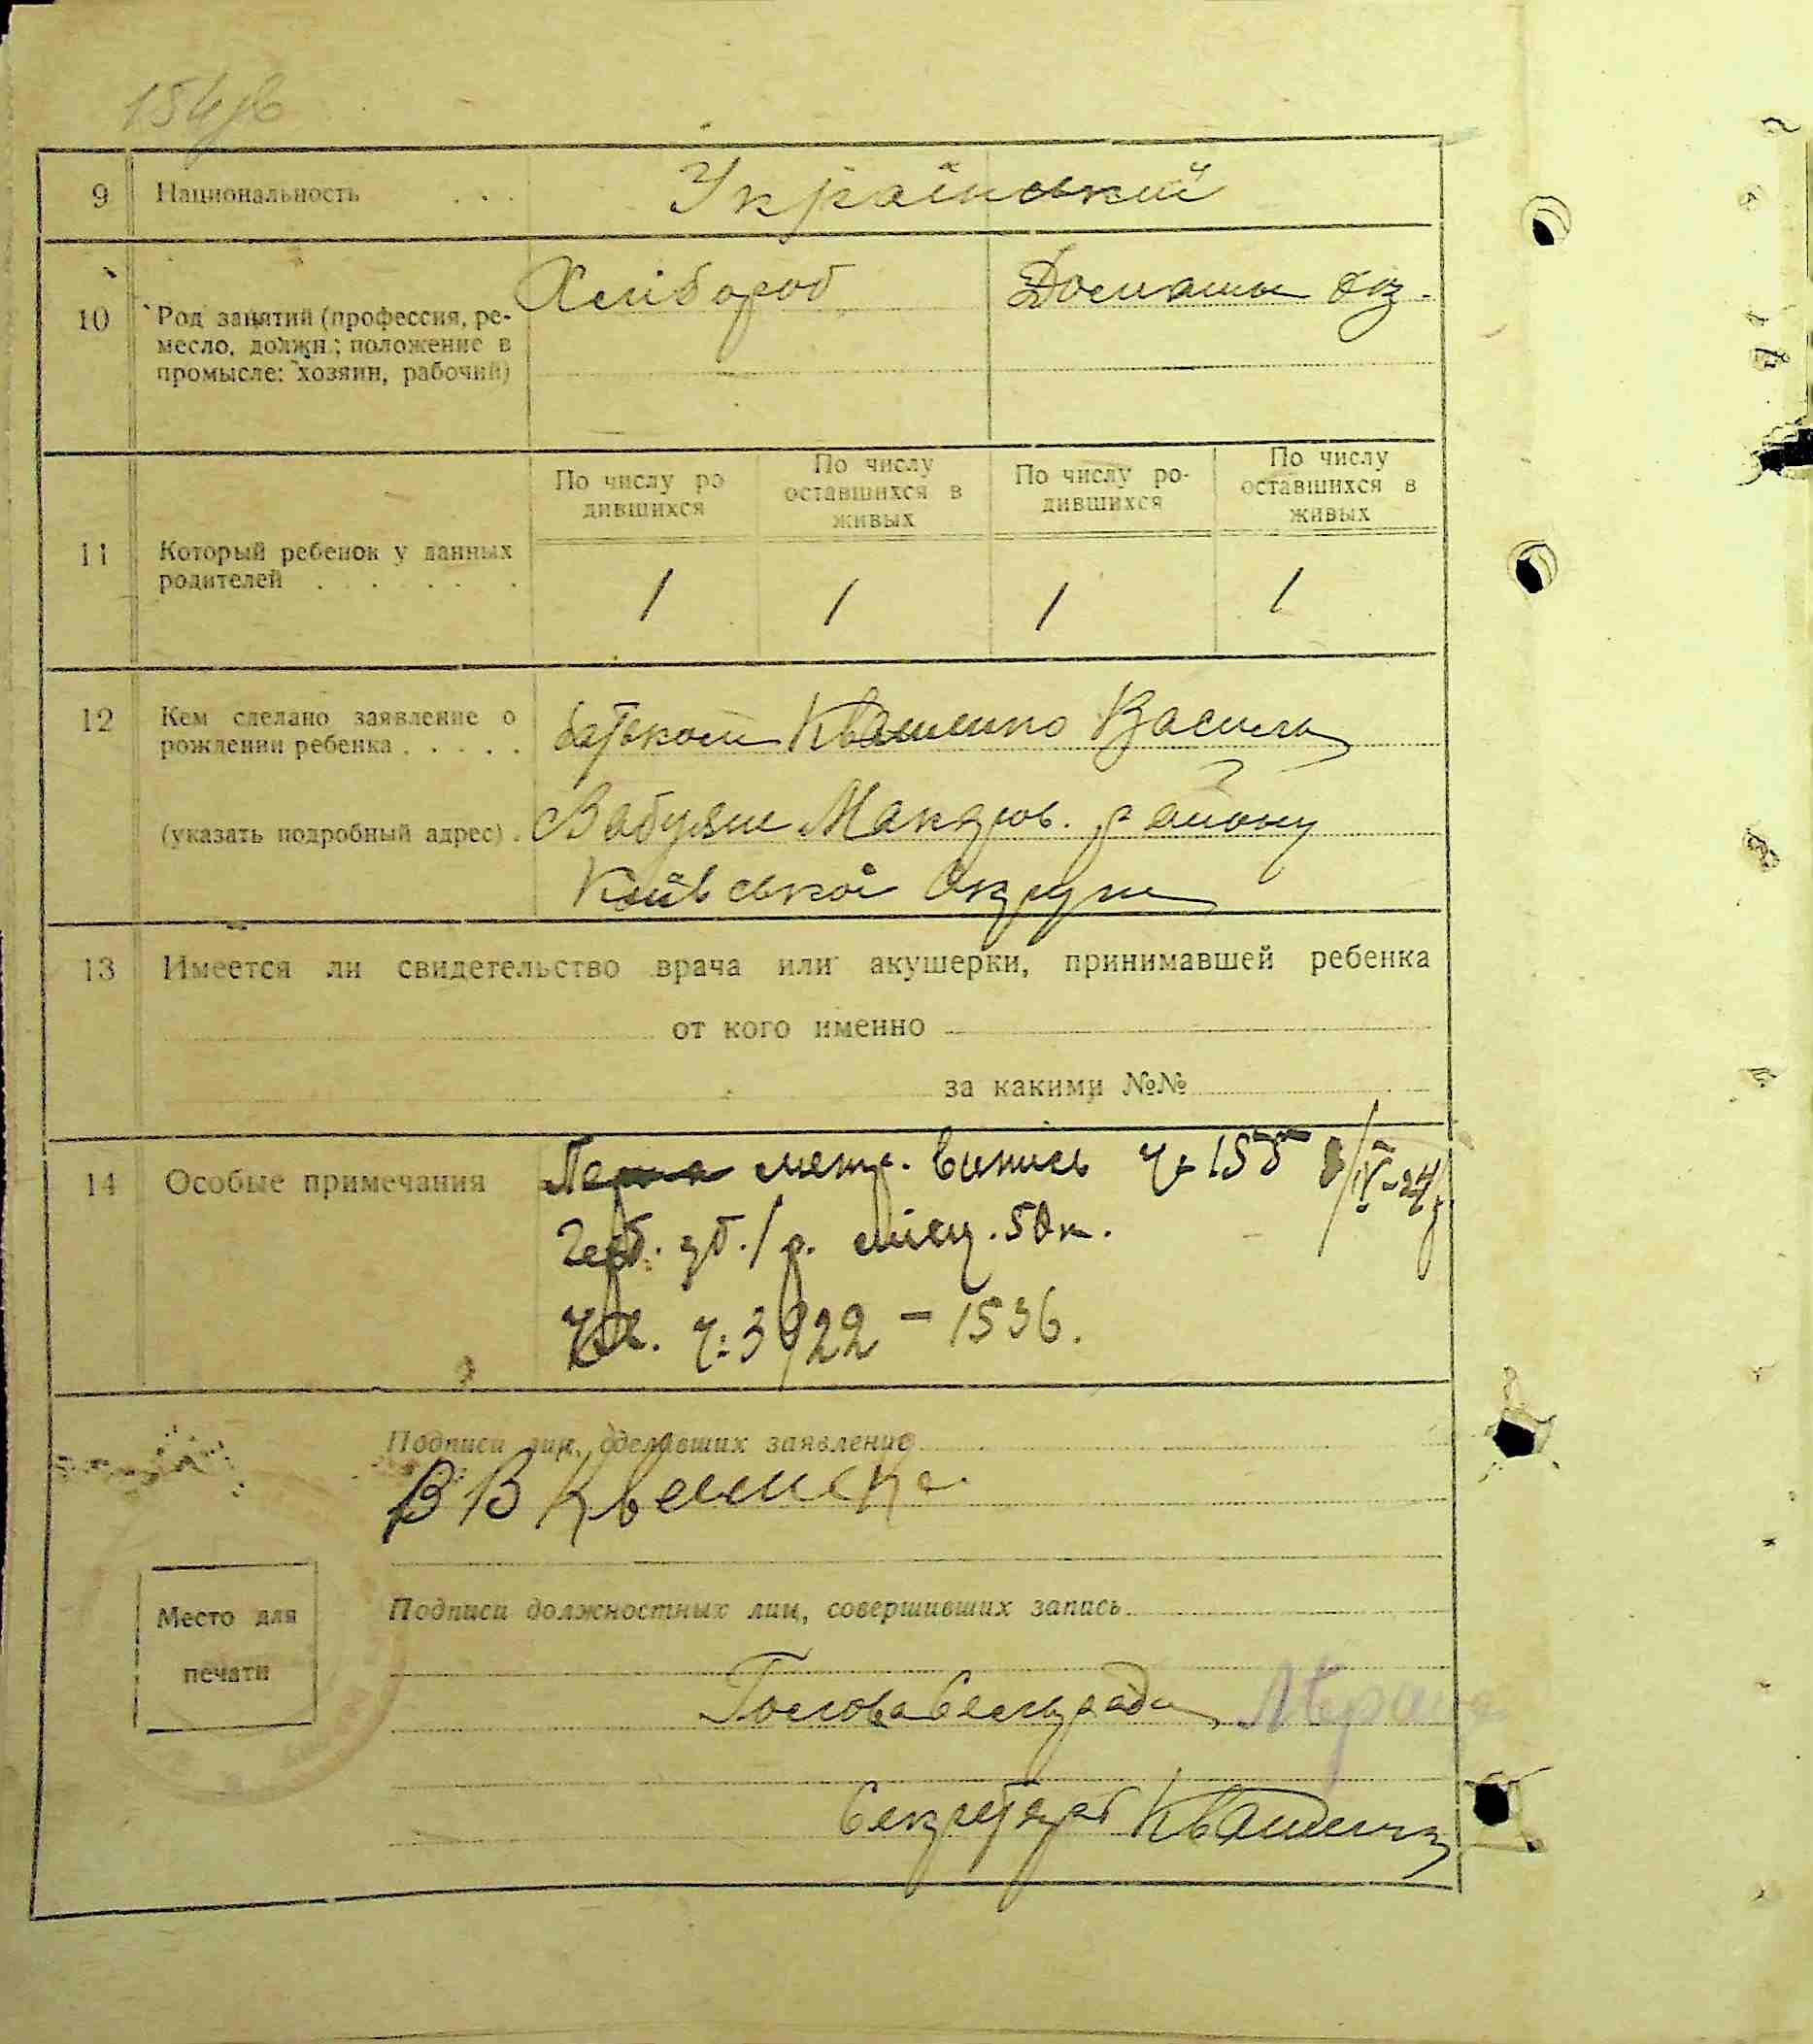 154
9 Национальность . . . Український
10 Род занятий (профессия, ре- Хлібороб Домашн хаз.
месло, должн.; положение в
промысле: хозяин, рабочий)
По числу ро По числу По числу ро- По числу
дившихся оставшихся в дившихся оставшихся в
живых живых
11 Который ребенок у данных
родителей . . . . . . 1 1 1 1
12 Кем сделано заявление о
рождении ребенка . . . . . батьком Квашенко Василь
(указать подробный адрес) . Забуяне Макаров. району
Київської Округи
13 Имеется ли свидетельство врача или акушерки, принимавшей ребенка
от кого именно
за какими №№
14 Особые примечания метр. випись ч. 155 /IV-24
Герб. зб. 1 р. місц. 50 к.
Кв. ч: 3922 - 1536.
Подписи лиц, сделавших заявление
В В Квашенко
Место для
печати
Подписи должностных лиц, совершивших запись
Голова Сельради
Секретарь Квашенко